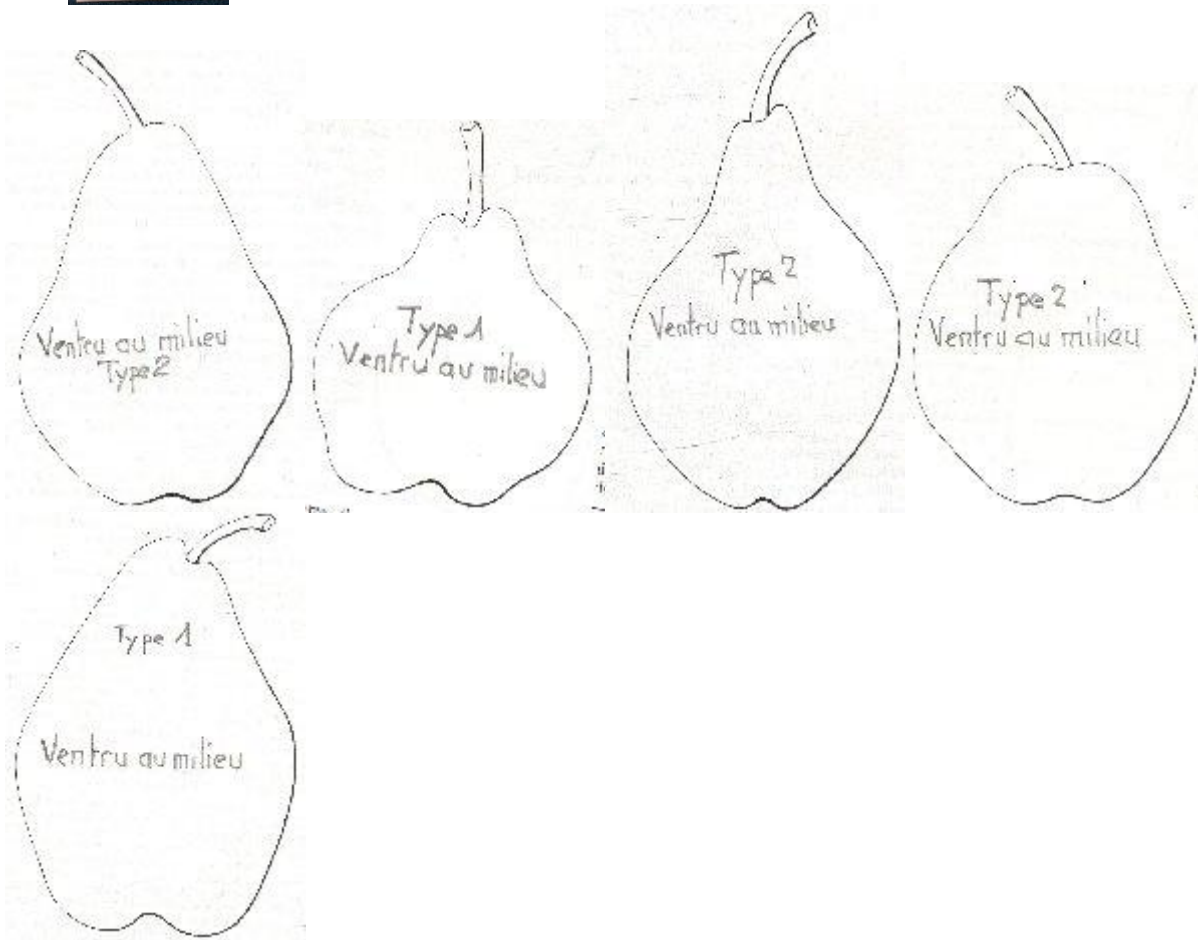 Ventru au milieu
Type 2
Type 1
Ventru au milieu
Type 2
Ventru au milieu
Type 2
Ventru au milieu
Type 1
Ventru au milieu